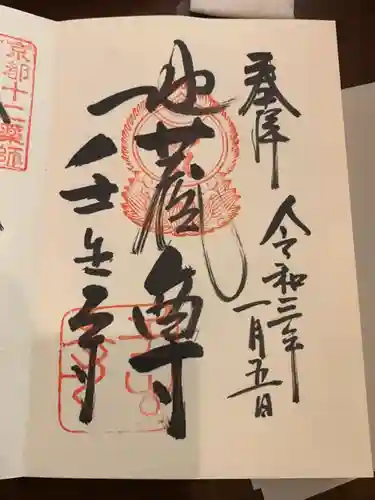 奉拝
令和三年
一月五日
地蔵尊
壬生寺
京都十二薬師